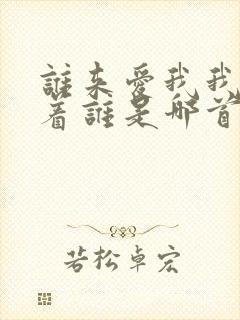 誰来愛我我
着誰是那首
若松卓宏